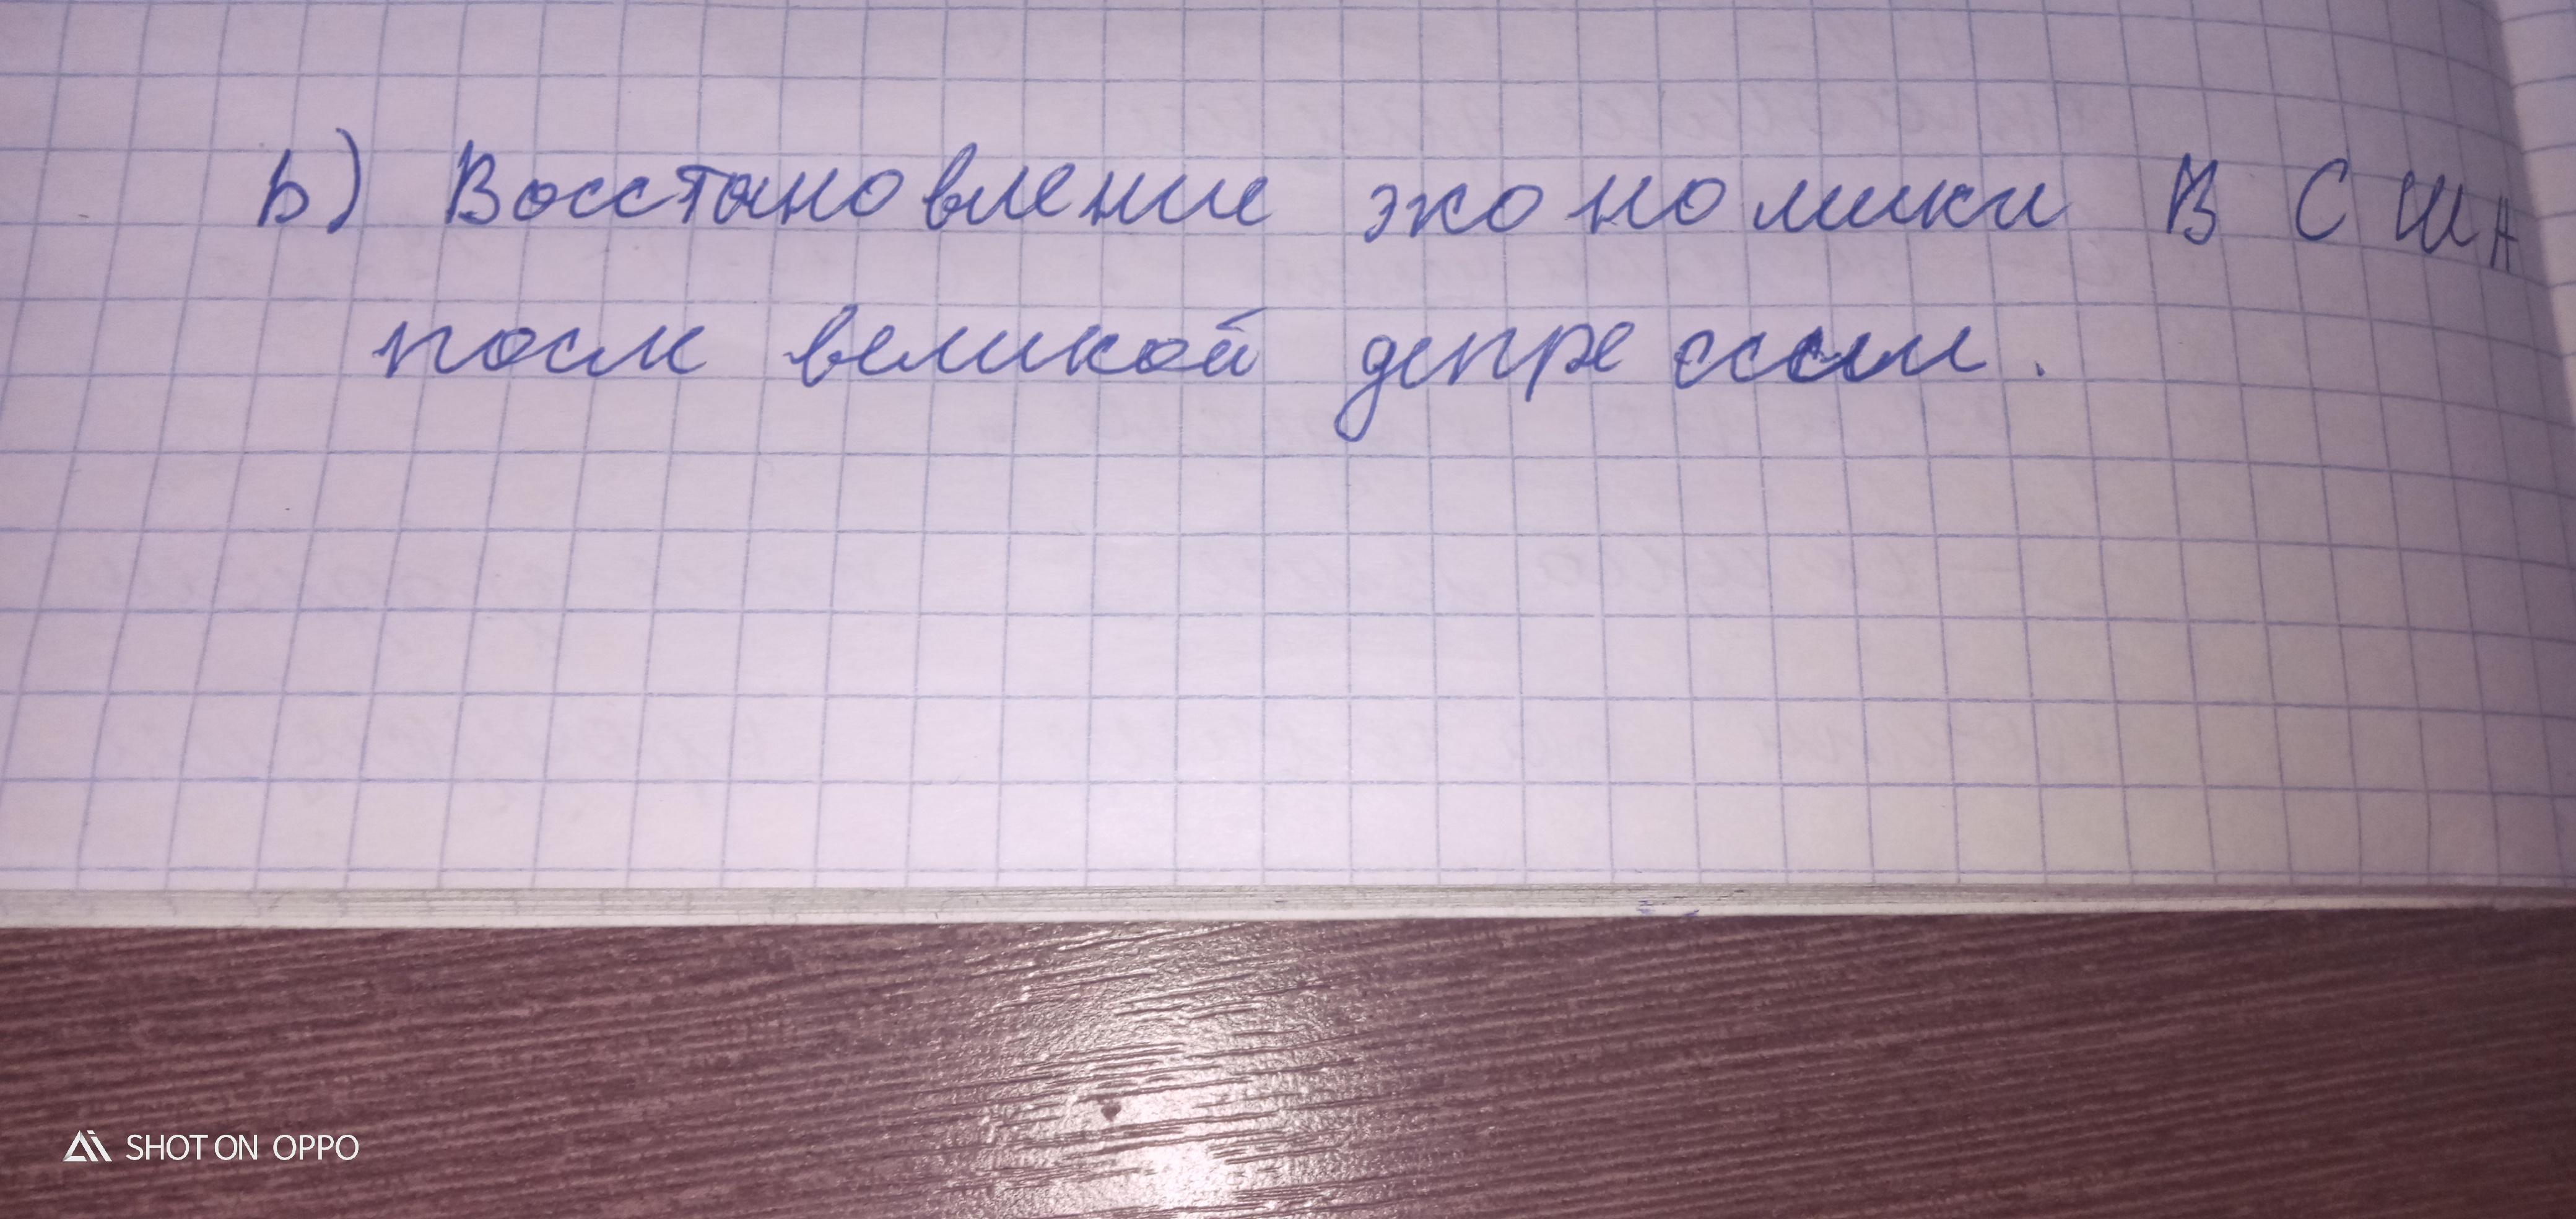 b) Восстановление экономики В США
после великой депрессии.
SHOT ON OPPO